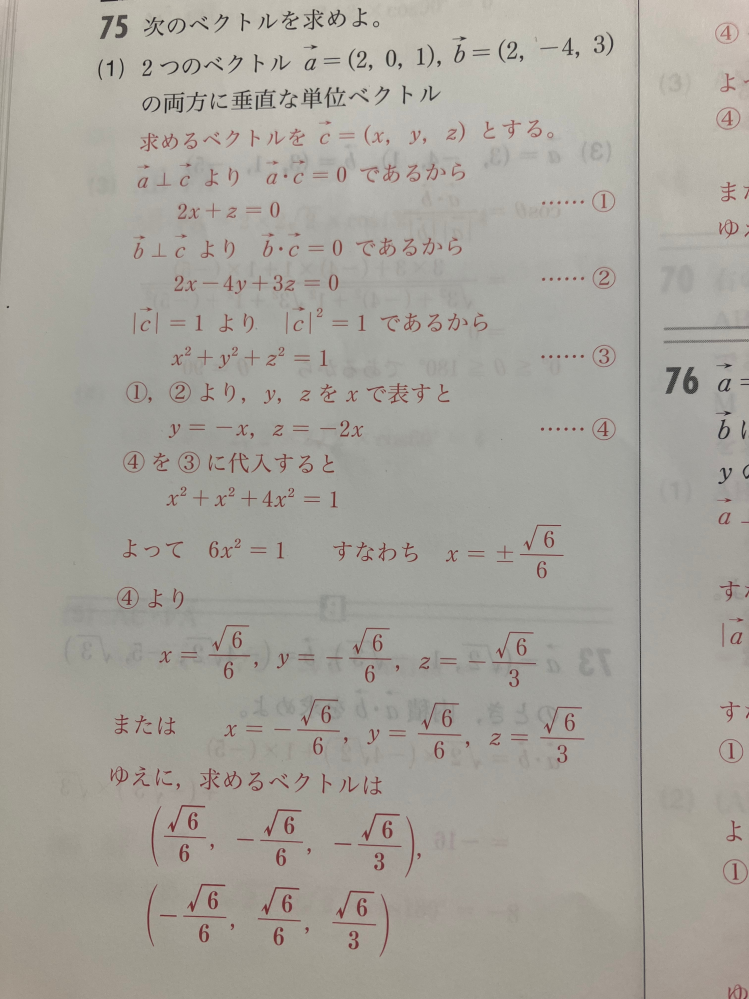 75 次のベクトルを求めよ。
(1) 2つのベクトル a→=(2, 0, 1), b→=(2, −4, 3)
の両方に垂直な単位ベクトル
求めるベクトルを c→=(x, y, z) とする。
a→⊥c→ より a→·c→=0 であるから
2x+z=0 ……①
b→⊥c→ より b→·c→=0 であるから
2x−4y+3z=0 ……②
|c→|=1 より |c→|²=1 であるから
x²+y²+z²=1 ……③
①, ②より, y, z を x で表すと
y=−x, z=−2x ……④
④を③に代入すると
x²+x²+4x²=1
よって 6x²=1 すなわち x=±√6/6
④より
x=√6/6, y=−√6/6, z=−√6/3
または x=−√6/6, y=√6/6, z=√6/3
ゆえに, 求めるベクトルは
(√6/6, −√6/6, −√6/3),
(−√6/6, √6/6, √6/3)
④
よっ
④
また
ゆえ
76 a→=
b→に
yの
a→⊥
すな
|a→
すな
①
よ
①
ゆ